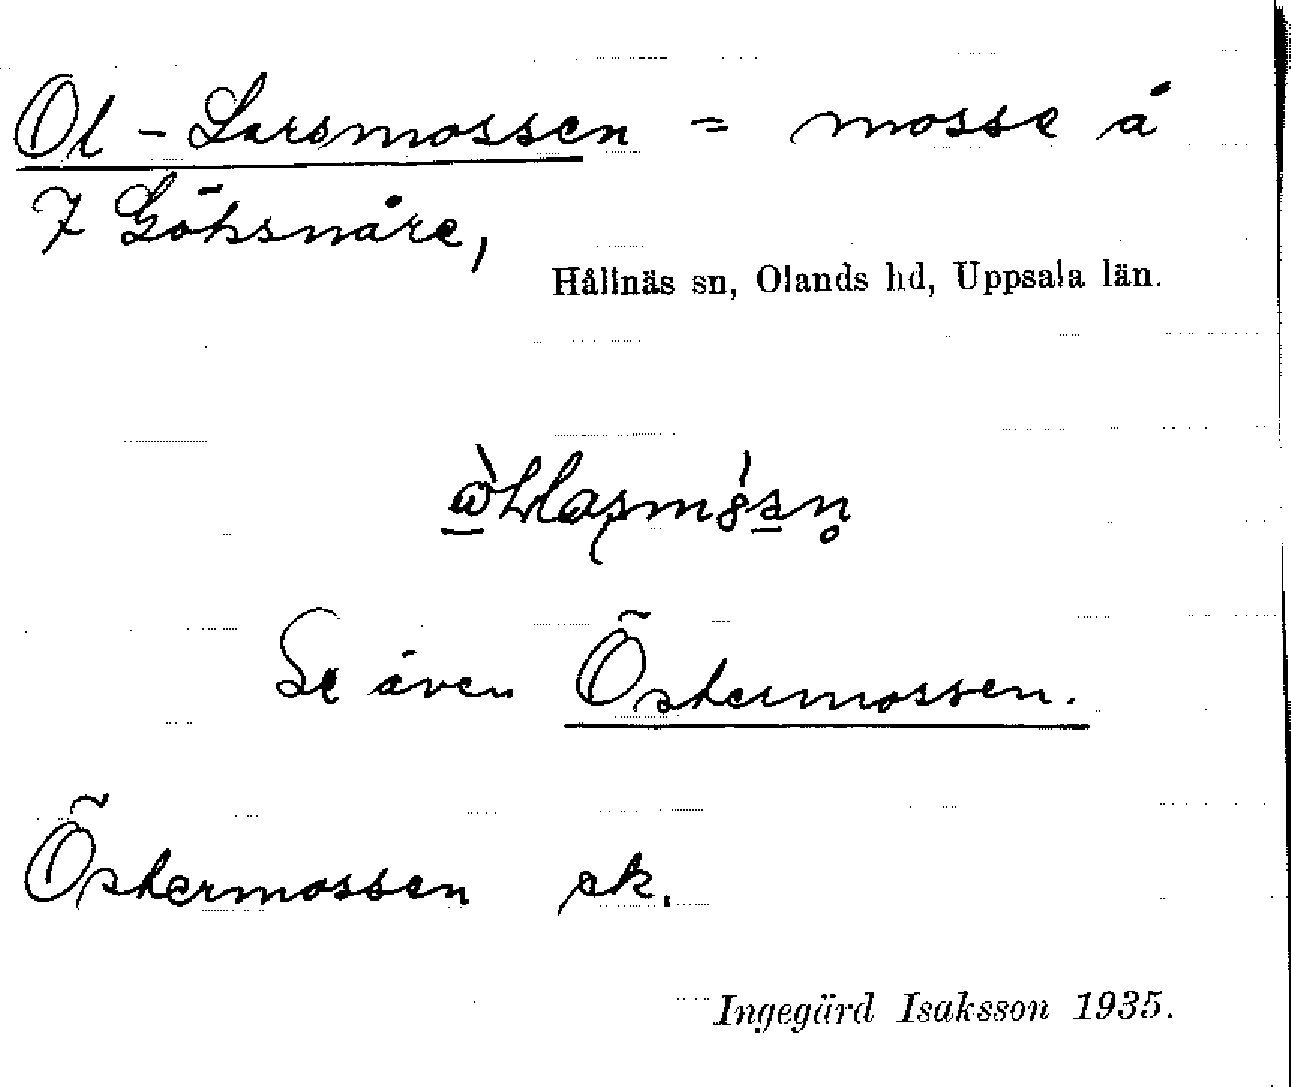 Ol-Larsmossen = mosse å
7 Göksnåre,
Hållnäs sn, Olands hd, Uppsala län.
Se även Östermossen.
Östermossen ek.
Ingegärd Isaksson 1935.